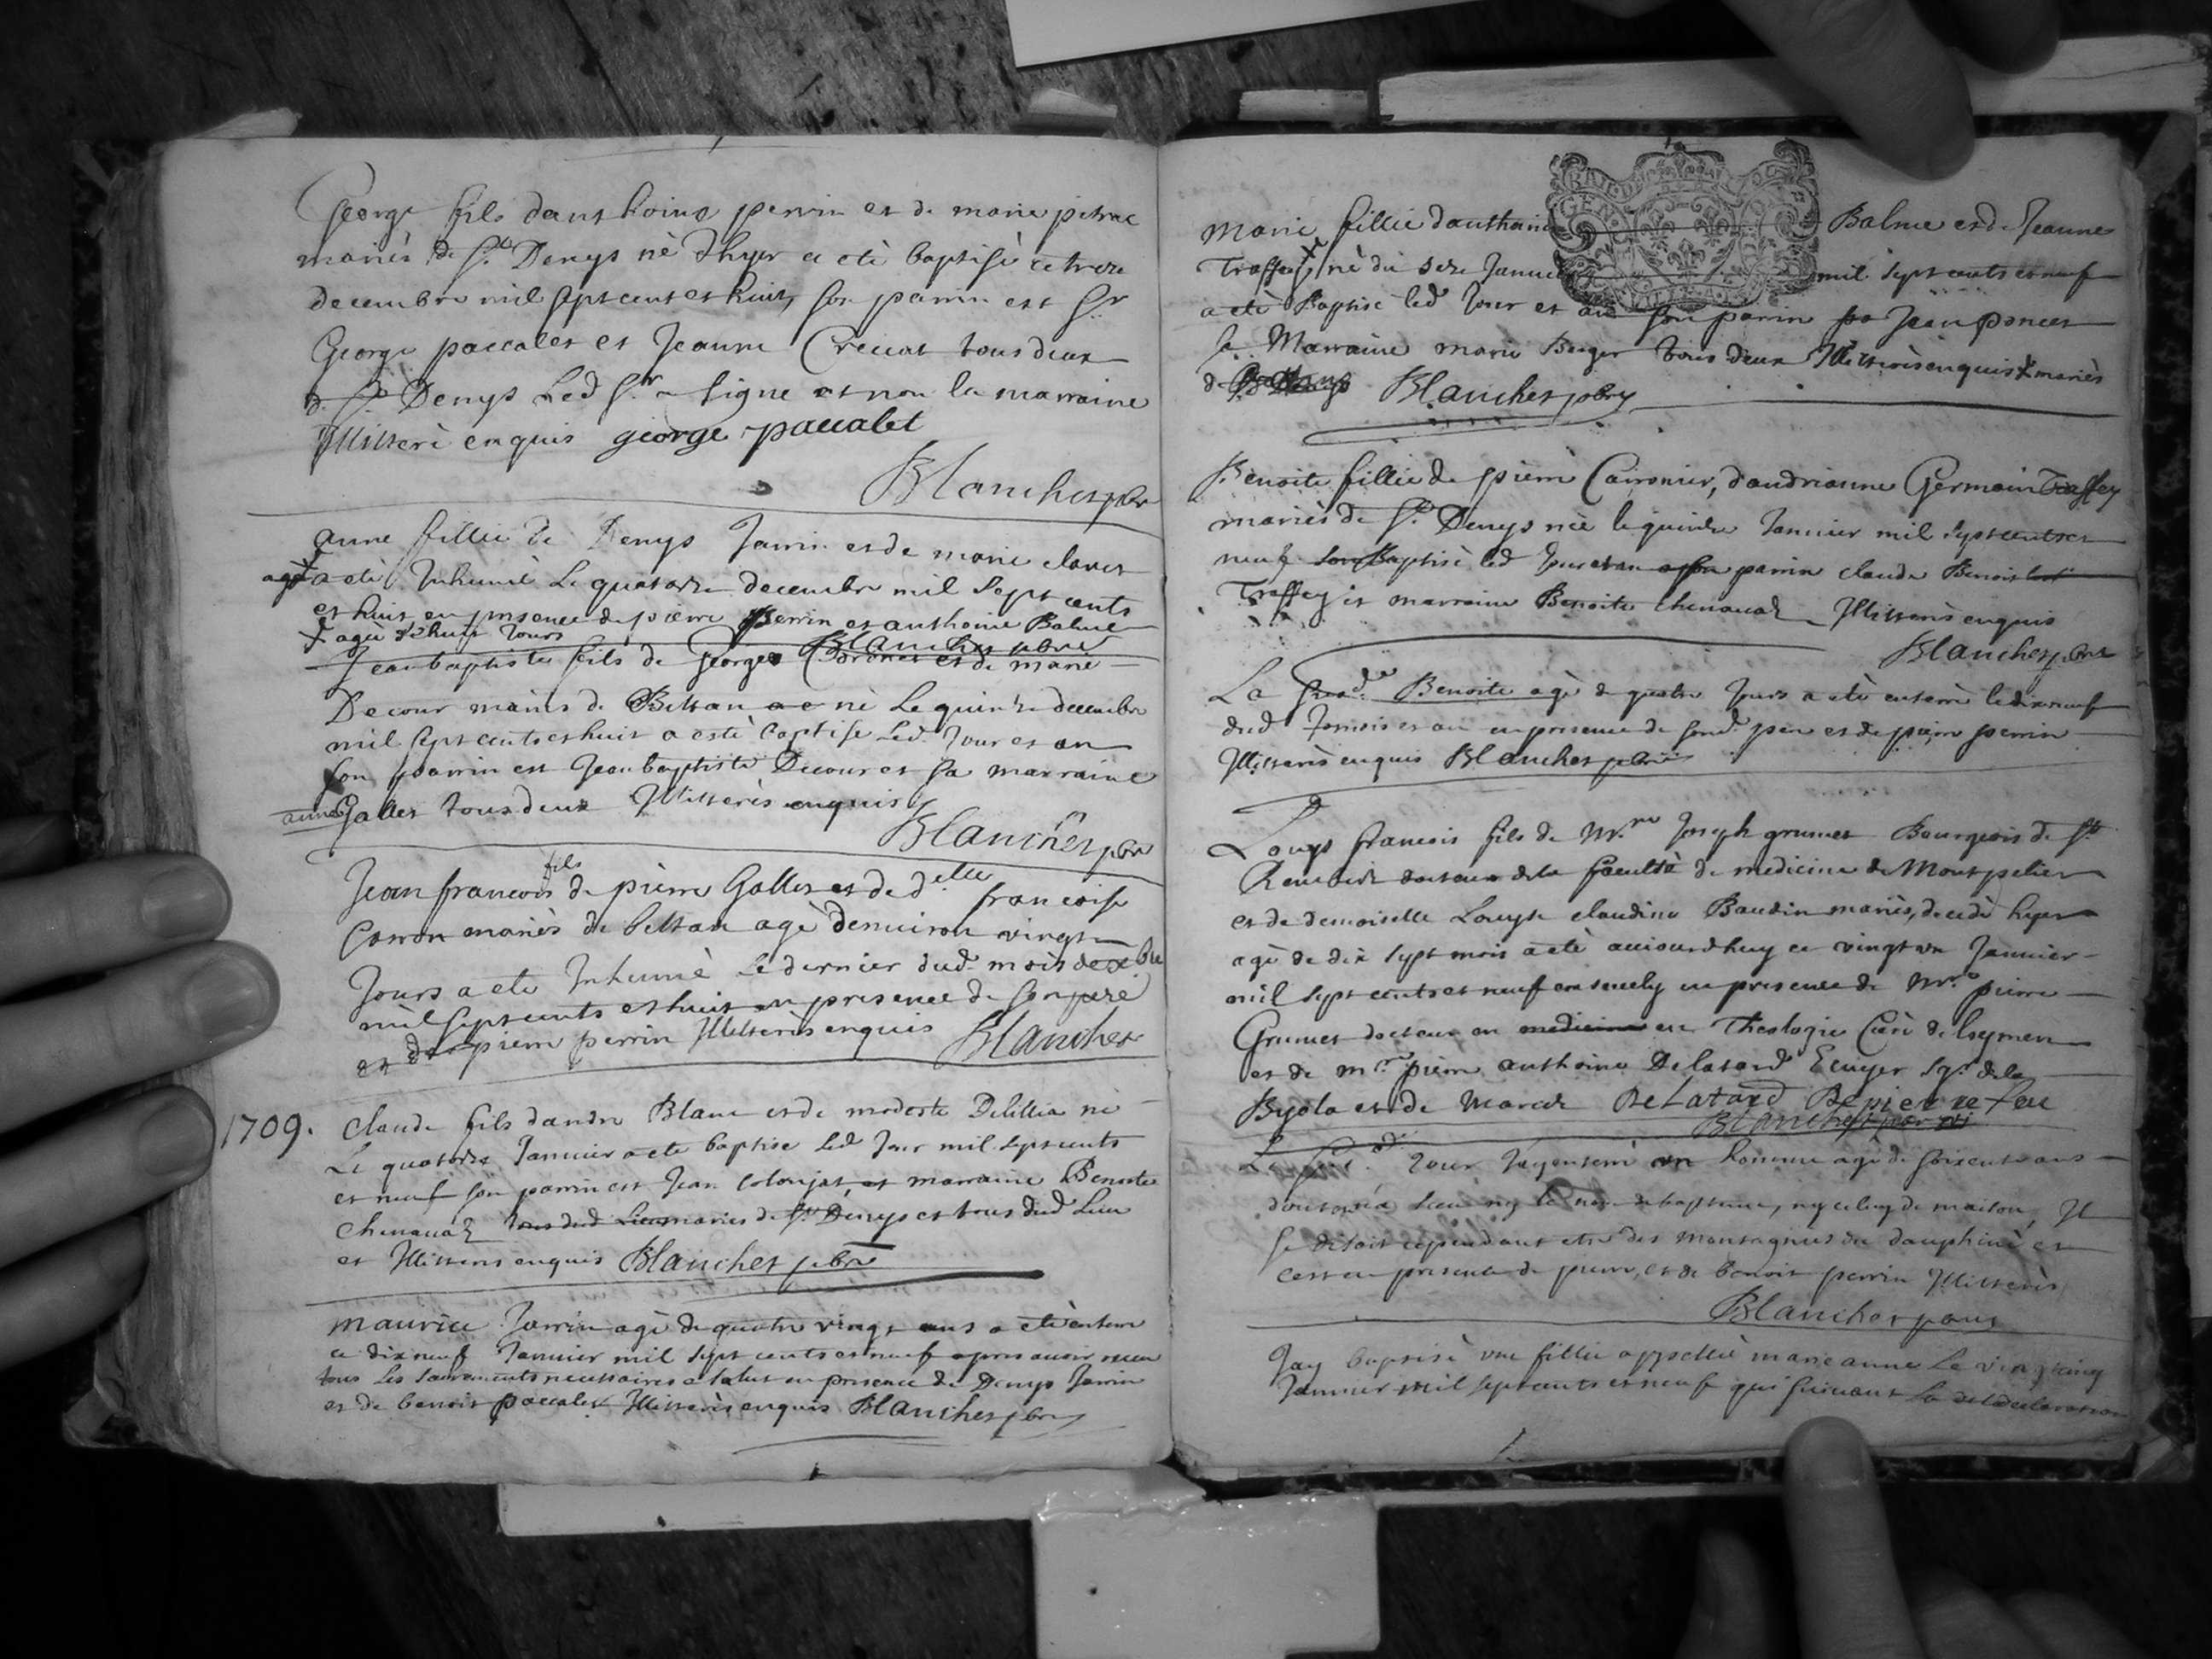 George fils d'anthoine perrin et de marie
mariès de St Denys nè d'hyer a etè baptisè ce treze
decembre mil sept cent et huit, son parrin est Sr
George paccalet et Jeanne Creuat tous deux
de St Denys Led Sr a signe et non la marraine
Illiterè enquis george paccalet
Blanchet pbre
anne fillie de Denys Jarrin et de marie claret
a etè Inhumè Le quatorze decembre mil Sept cents
et huit en presence de pierre perrin et anthoine Balme
agè d'huit Jours Blanchet pbre
Jean baptiste fils de George et de marie
Decour mariès de Bettan nè Le quinze decembre
mil sept cents et huit a estè baptise Led. Jour et an
son parrin est Jean baptiste Decour et sa marraine
anne Gallet tous deux Illiterès enquis
Blanchet pbre
Jean francois fils de pierre Gallet et de delle francoise
Carron mariès de bettan agè d'enuiron vingt
Jours a ete Inhumè Le dernier dud. mois de xbre
mil sept cents et huit en presence de son pere
et de pierre perrin Illiterès enquis Blanchet
1709. claude fils d'andre Blanc et de modeste Delillia nè
Le quatorze Januier a ete baptise Led Jour mil sept cents
et neuf son parrin est Jean colonjat, et marraine Benoite
chenauaz mariès de St Denys et tous dud Lieu
et Illiterès enquis Blanchet pbre
maurice Jarrin agè de quatre vingt ans a etè enterrè
ce dix neuf Januier mil sept cents et neuf apres auoir receu
tous Les sacrements necessaires a salut en presence de Denys Jarrin
et de benoit paccalet Illiterès enquis Blanchet pbre
marie fillie d'anthoine Balme et de Jeanne
Traffey nè du seze Januier mil sept cents et neuf
a etè Baptisè led Jour et an son parrin Jean poncet
sa Marraine marie Berger tous deux Illiterès enquis mariès
de St Denys Blanchet pbre
Benoite fillie de pierre d'andrianne Germain Traffey
mariès de St Denys nèe le quinze Januier mil sept cents et
neuf Baptisè led Jour et an parrin claude Benoit
Traffey et marraine Benoite chenauaz Illiterès enquis
Blanchet pbre
La susde Benoite agè de quatre Jours a etè enterrè le dix neuf
dud mois et an en presence de sond. pere et de pierre perrin
Illiterès enquis Blanchet pbre
Louys francois fils de Mre Joseph grumet Bourgeois de St
docteur de la facultè de medicine de Montpelier
et de demoiselle Louyse claudine Baudin mariès, decedè hyer
agè de dix sept mois a etè auiourd'huy ce vingt un Januier
mil sept cents et neuf enseuely en presence de Mre pierre
Grumet docteur en medicine en Theologie Curè de Loymen
et de mre pierre anthoine Delatard Ecuyer Sgr. de la
Byola et de Marcir DeLatard Depierrefeu
Blanchet
Le susd. Jour Jay enterrè un homme agè de soixente ans
dont on n'a sceu ny le nom de bapteme, ny celuy de maison, Il
se disoit cependant etre des montagnies du dauphinè et
c'est en presence de pierre, et de benoit perrin Illiterès
Blanchet
Jay baptisè une fillie appellèe marie anne Le vingt cinq
Januier mil sept cents et neuf qui suiuant La declaration